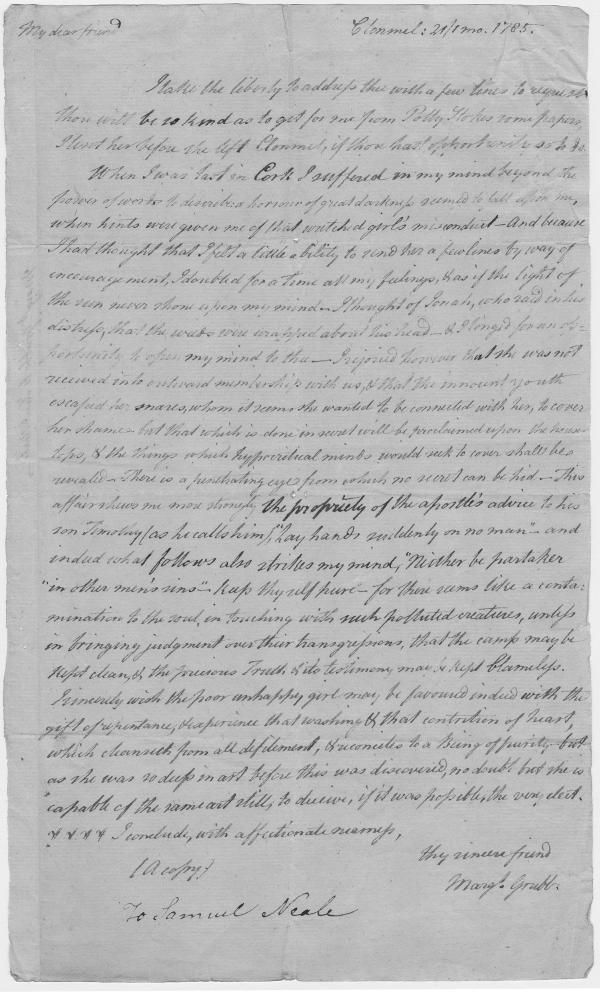 My dear friend
Clonmel: 21/1 mo. 1785.
I take the liberty to address thee with a few lines to request
thou will be so kind as to get for me from Polly Stokes some papers,
I lent her before she left Clonmel, if thou hast opportunity so to do.
When I was last in Cork I suffered in my mind beyond the
power of words to describe a horrour of great darkness seemed to fall upon me,
when hints were given me of that wretched girl's misconduct – And because
I had thought that I felt a little ability to send her a few lines by way of
encouragement, I doubted for a time all my feelings, & as if the light of
the sun never shone upon my mind – I thought of Jonah, who said in his
distress, that the weeds were wrapped about his head – & I longed for an op=
portunity to open my mind to thee – I rejoiced however that she was not
received into outward membership with us, & that the innocent youth
escaped her snares, whom it seems she wanted to be connected with her, to cover
her shame – but that which is done in secret will be proclaimed upon the house
tops, & the things which hypocritical minds would seek to cover shall be
revealed – There is a penetrating eye, from which no secret can be hid – This
affair shews me more strongly the propriety of the apostle's advice to his
son Timothy (as he calls him) "Lay hands suddenly on no man" – and
indeed what follows also strikes my mind, "Neither be partaker
"in other men's sins" – keep thyself pure – for there seems like a conta=
mination to the soul, in touching with such polluted creatures, unless
in bringing judgment over their transgressions, that the camp may be
kept clean, & the precious Truth & its testimony may be kept blameless.
I sincerely wish the poor unhappy girl may be favoured indeed with the
gift of repentance, & experience that washing & that contrition of heart,
which cleanseth from all defilement, & reconciles to a Being of purity, but
as she was so deep in art before this was discovered, no doubt but she is
"capable of the same art still, to deceive, if it was possible, the very elect.
* * * * I conclude, with affectionate nearness,
thy sincere friend
(A copy)
Margt. Grubb.
To Samuel Neale